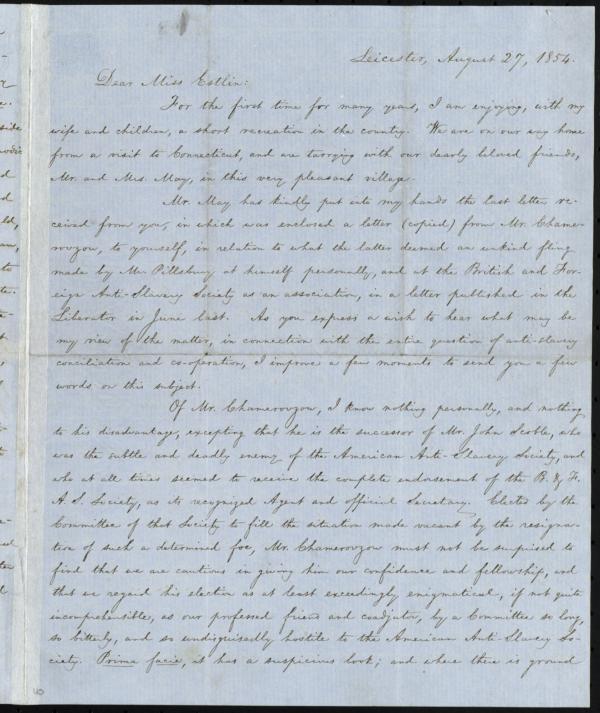 Leicester, August 27, 1854.
Dear Miss Estlin:
For the first time for many years, I am enjoying, with my
wife and children, a short recreation in the country. We are on our way home
from a visit to Connecticut, and are tarrying with our dearly beloved friends,
Mr. and Mrs. May, in this very pleasant village.
Mr. May has kindly put into my hands the last letter re-
ceived from you, in which was enclosed a letter (copied) from Mr. Chame-
rovzow, to yourself, in relation to what the latter deemed an unkind fling
made by Mr. Pillsbury at himself personally, and at the British and For-
eign Anti-Slavery Society as an association, in a letter published in the
Liberator in June last. As you express a wish to hear what may be
my view of the matter, in connection with the entire question of anti-slavery
conciliation and co-operation, I improve a few moments to send you a few
words on this subject.
Of Mr. Chamerovzow, I know nothing personally, and nothing
to his disadvantage, excepting that he is the successor of Mr. John Scoble, who
was the subtle and deadly enemy of the American Anti-Slavery Society, and
who at all times seemed to receive the complete endorsement of the B. & F.
A. S. Society, as its recognized Agent and official Secretary. Elected by the
Committee of that Society to fill the situation made vacant by the resigna-
tion of such a determined foe, Mr. Chamerovzow must not be surprised to
find that we are cautious in giving him our confidence and fellowship, and
that we regard his election as at least exceedingly enigmatical, if not quite
incomprehensible, as our professed friend and coadjutor, by a Committee so long,
so bitterly, and so undisguisedly hostile to the American Anti Slavery So-
ciety. Prima facie, it has a suspicious look; and where there is ground